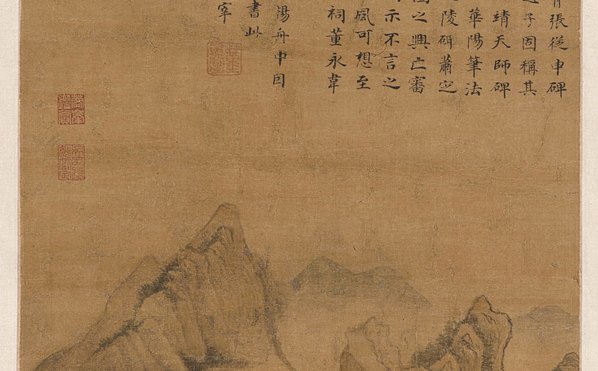 張從申碑
子因稱其
靖天師碑
華陽筆法
陵碑蕭定
之興亡審
示不言之
風可想至
祠董永韋
陽舟中因
書此
宰